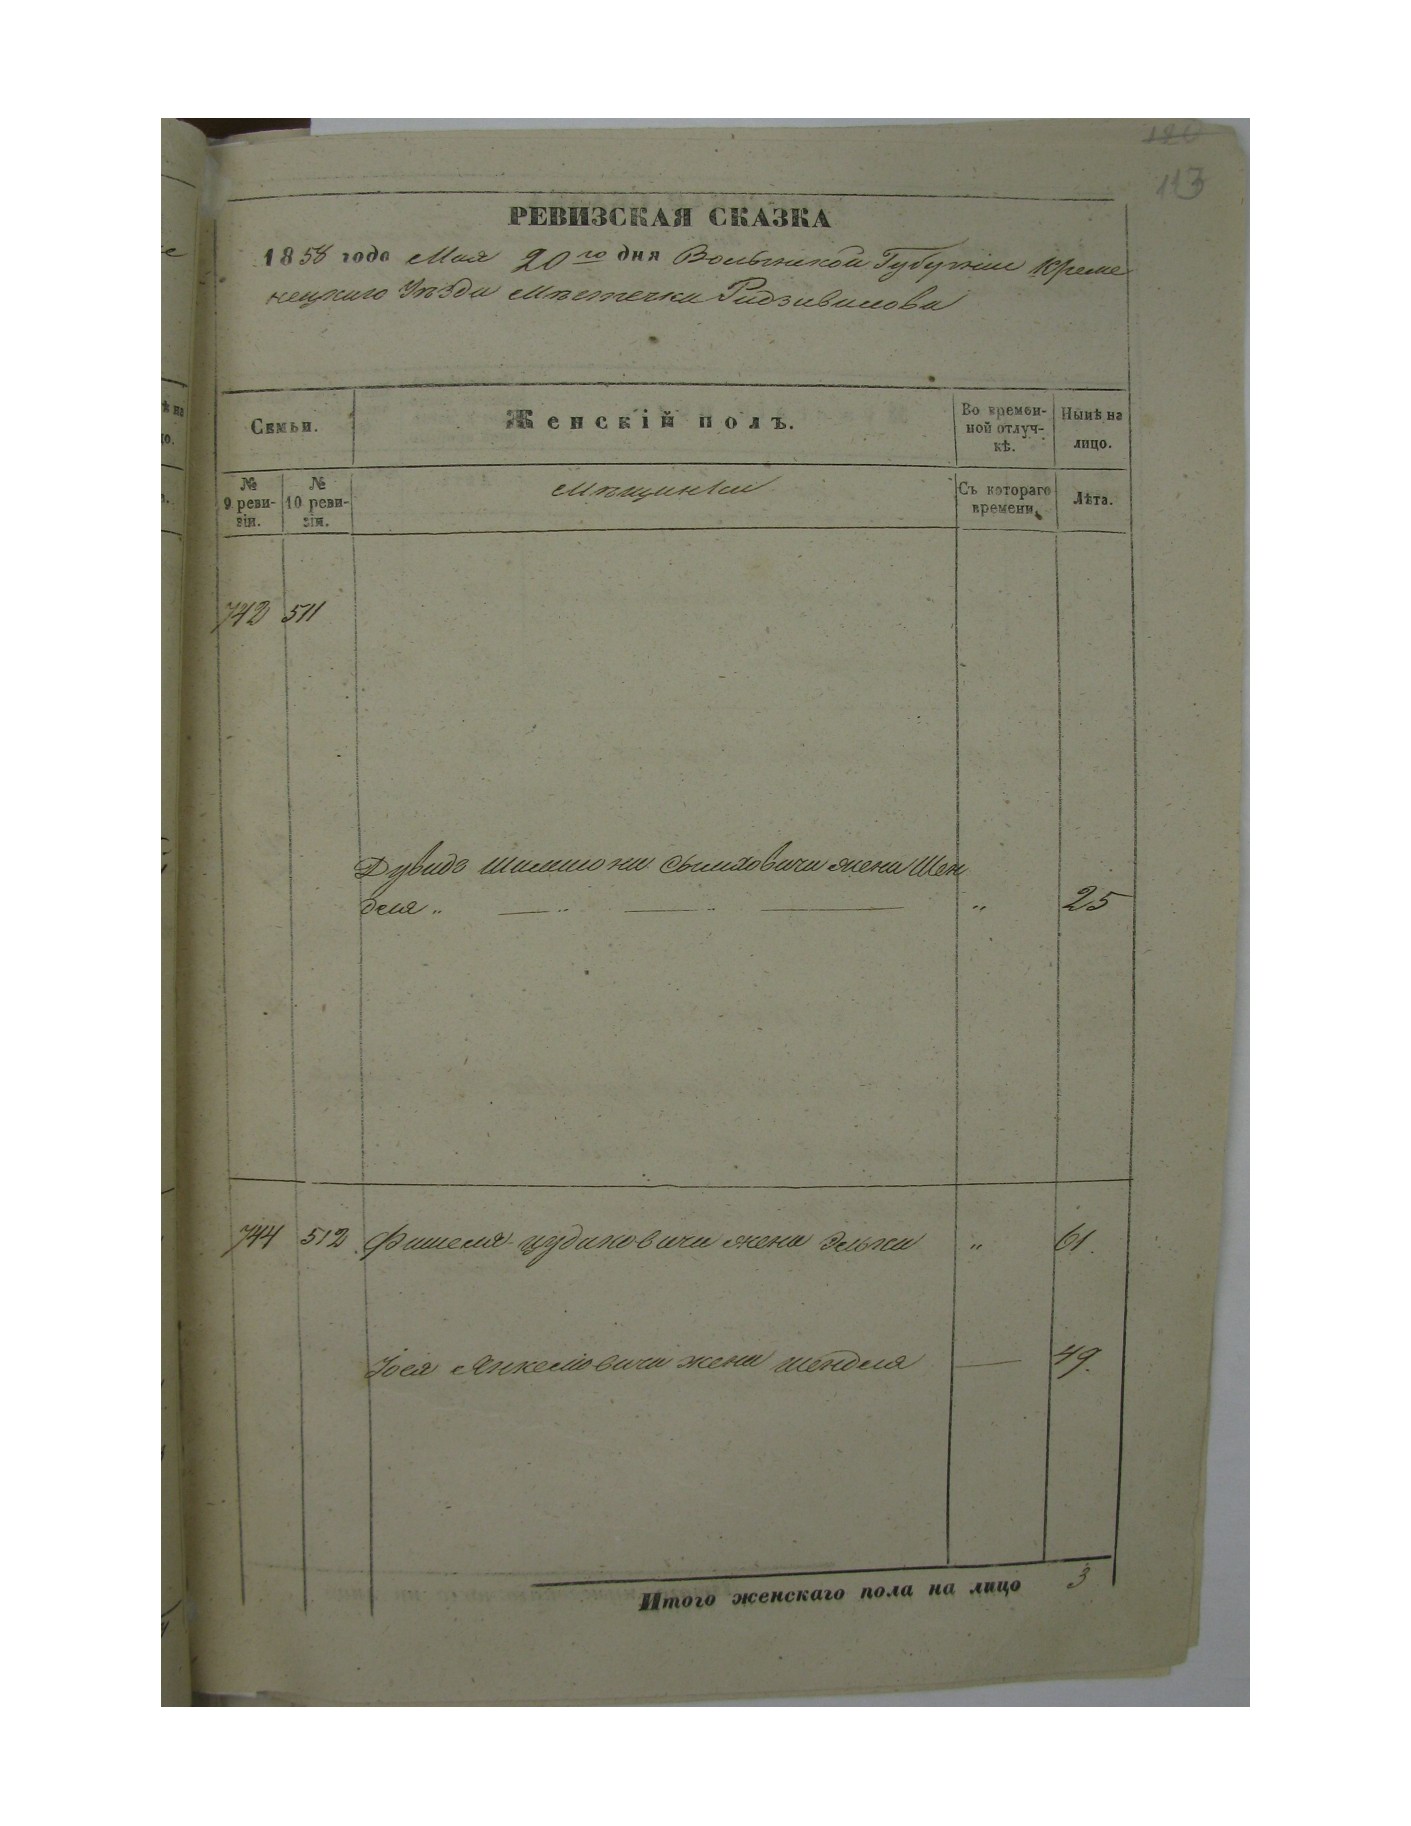 120
113
РЕВИЗСКАЯ СКАЗКА
1858 года Мая 20го дня Волынской Губернии Креме
нецкаго Уѣзда Мѣстечка Радзивилова
Семьи.
Женскій полъ.
Во времен-
ной отлуч-
кѣ.
Нынѣ на
лицо.
№
9 реви-
зіи.
№
10 реви-
зіи.
Мѣщанки
Съ котораго
времени.
Лѣта.
742 511
Дувидъ Шимшона Сымховича жена Шен
деля „ — „ — — „ 25
744 512 Фишеля жена Элька „ 61.
Іося Янкелiовича жена шенделя — 49.
Итого женскаго пола на лицо 3